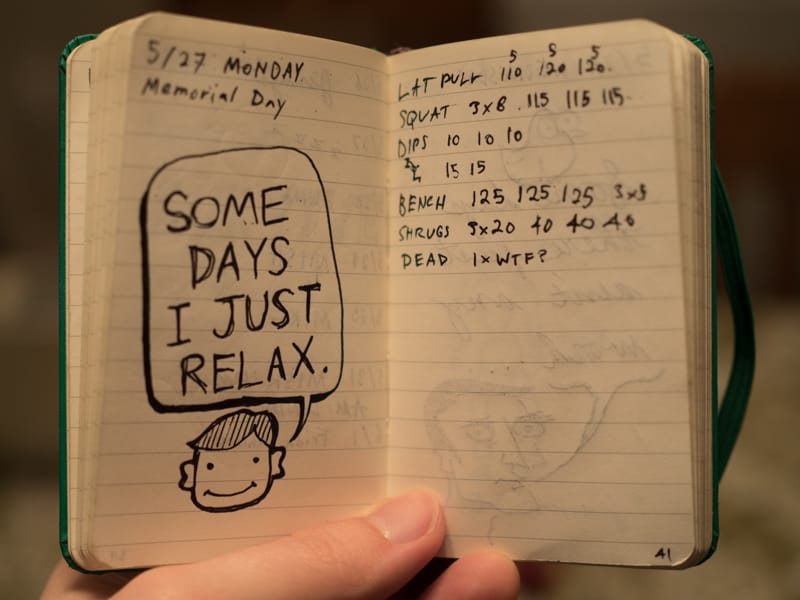 5/27 MONDAY
Memorial Day
SOME
DAYS
I JUST
RELAX.
5 5 5
LAT PULL 110 120 120.
SQUAT 3x8 115 115 115
DIPS 10 10 10
15 15
BENCH 125 125 125 3x5
SHRUGS 3x20 40 40 40
DEAD 1x WTF?
41